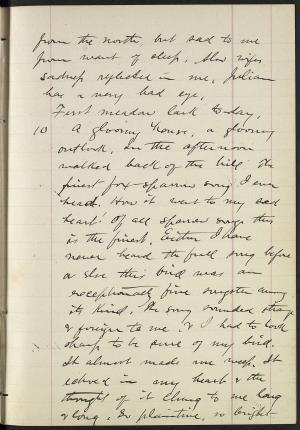 from the north, but sad to me
from want of sleep. Also wifes
sadness reflected in me. Julian
has a very bad eye,
First meadow lark to-day,
10 A gloomy house, a gloomy
outlook, in the afternoon
walked back of the hill. The
finest fox-sparrow song I ever
heard. How it went to my sad
heart! Of all sparrow songs this
is the finest. Either I have
never heard the full song before
or else this bird was an
exceptionally fine songster among
its kind. The song sounded strange
& foreign to me, & I had to look
sharp to be sure of my bird.
It almost made me weep. It
echoed in my heart & the
thought of it clung to me long
& long. So plaintive, so bright